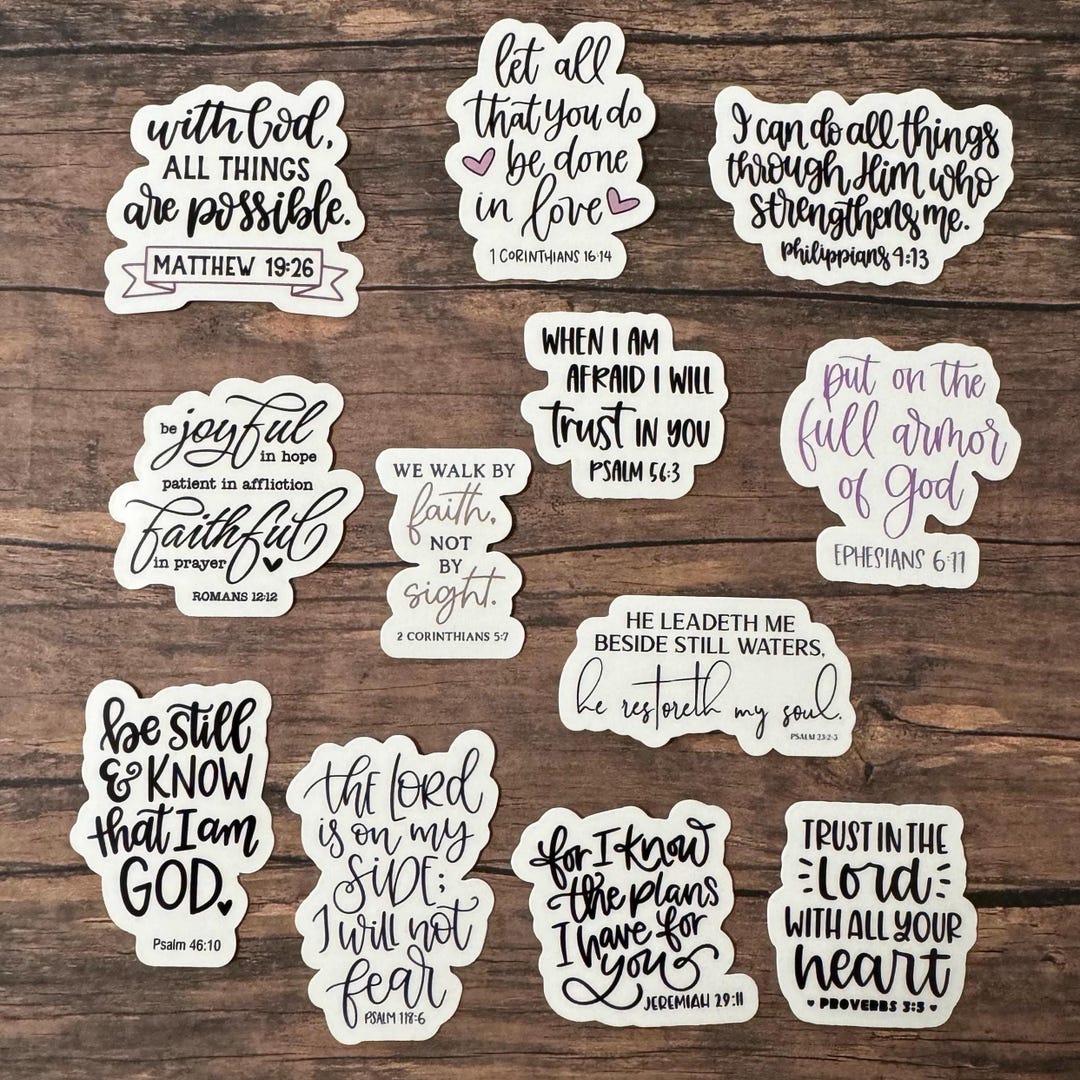 with God,
ALL THINGS
are possible.
MATTHEW 19:26
let all
that you do
be done
in love
1 CORINTHIANS 16:14
I can do all things
through Him who
strengthens me.
Philippians 4:13
WHEN I AM
AFRAID I WILL
trust IN YOU
PSALM 56:3
put on the
full armor
of God
EPHESIANS 6:11
be joyful
in hope
patient in affliction
faithful
in prayer
ROMANS 12:12
WE WALK BY
faith,
NOT
BY
sight.
2 CORINTHIANS 5:7
HE LEADETH ME
BESIDE STILL WATERS,
he restoreth my soul.
PSALM 23:2-3
be still
& KNOW
that I am
GOD.
Psalm 46:10
the LORD
is on my
SIDE;
I will not
fear
PSALM 118:6
for I know
the plans
I have for
you
JEREMIAH 29:11
TRUST IN THE
Lord
WITH ALL YOUR
heart
PROVERBS 3:5